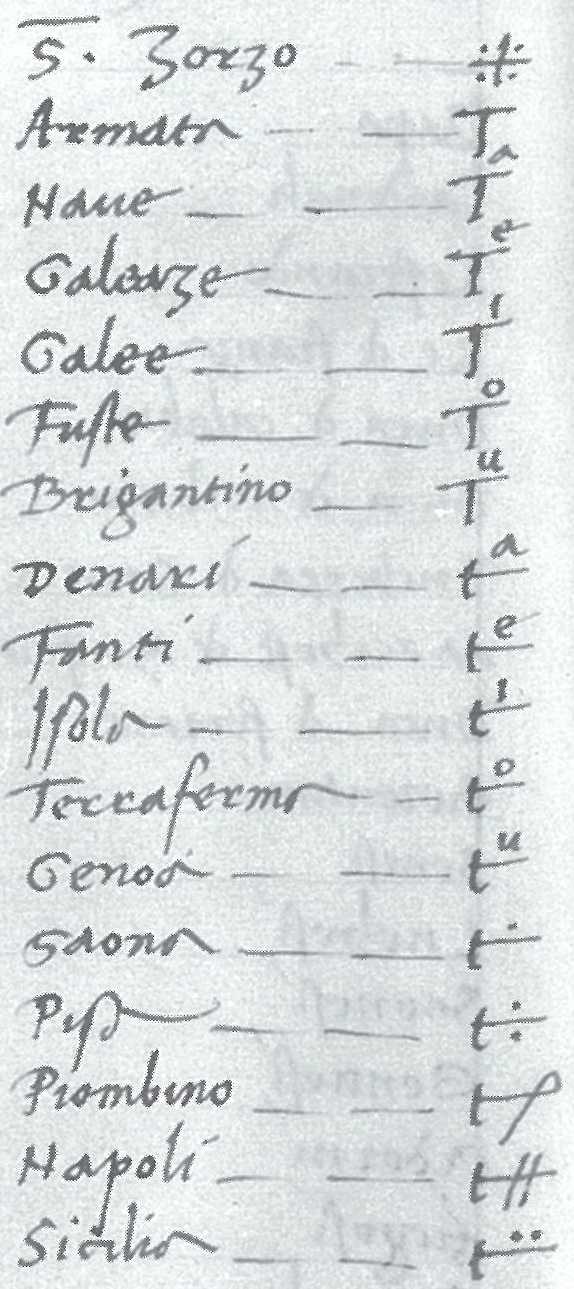 S. Zorzo — ⁜
Armata — Tᵃ
Naue — Tᵉ
Galeaze — Tⁱ
Galee — Tᵒ
Fuste — Tᵘ
Brigantino — T
Denari — tᵃ
Fanti — tᵉ
Isola — tⁱ
Terraferma — tᵒ
Genoa — tᵘ
Saona — t
Pisa — t÷
Piombino — t
Napoli — t
Sicilia — t